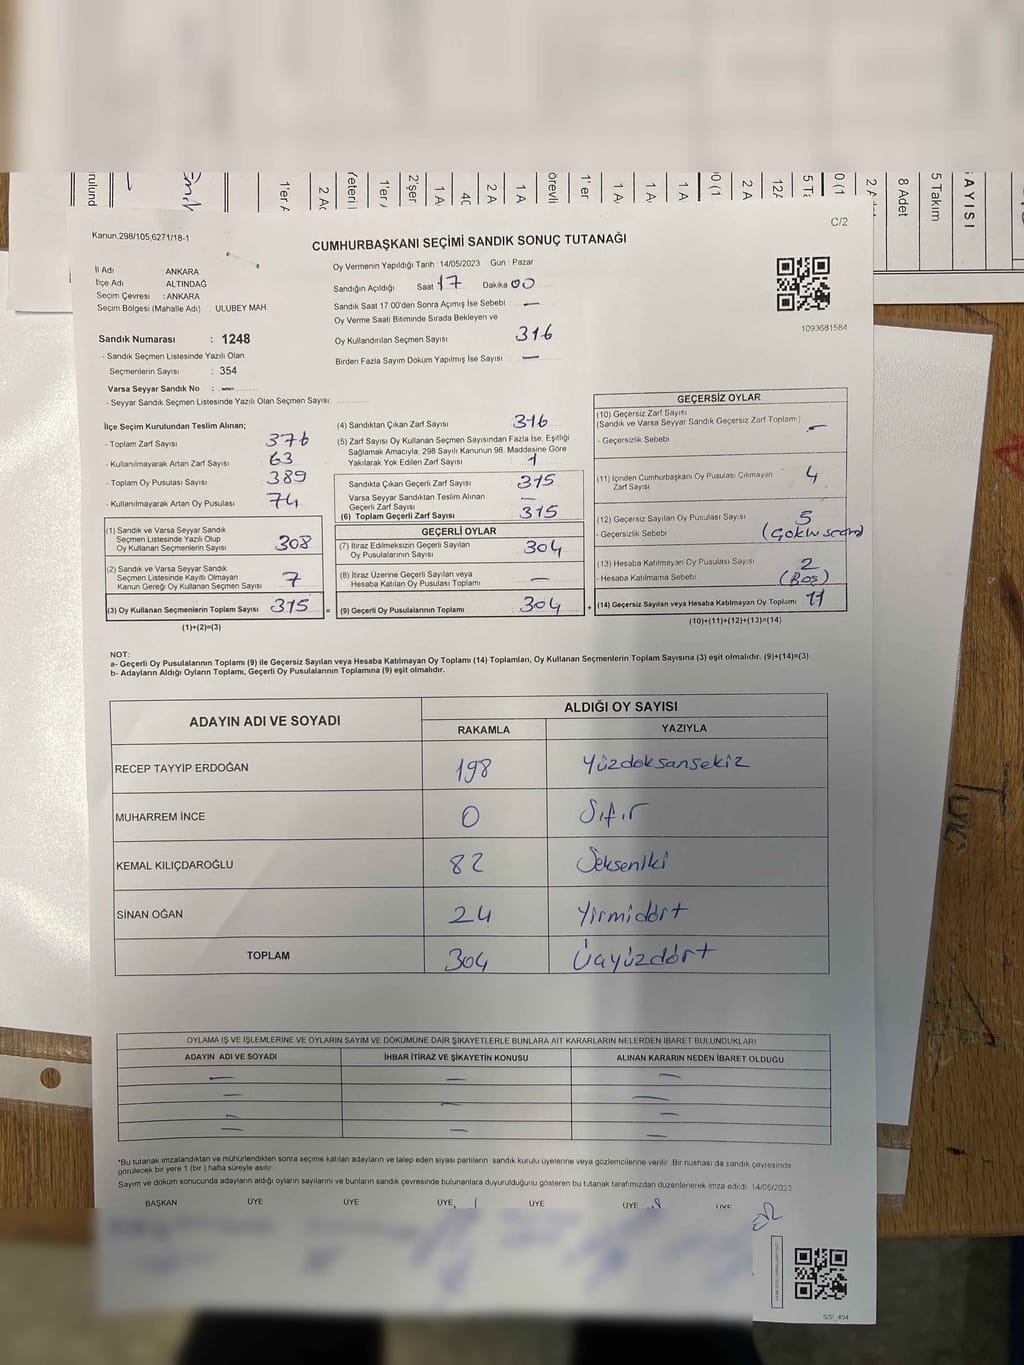 rulund
1'er A
2 A
Yeteri
1'er
2'şer
1 A
2 A
1 A
örevli
1'er
1 A
1 A
1 A
0 (1
2 A
12/
0 (1
2 A
8 Adet
5 Takım
AYISI
C/2
Kanun.298/105,6271/18-1
CUMHURBAŞKANI SEÇİMİ SANDIK SONUÇ TUTANAĞI
İl Adı : ANKARA
İlçe Adı : ALTINDAĞ
Seçim Çevresi : ANKARA
Seçim Bölgesi (Mahalle Adı) : ULUBEY MAH
Oy Vermenin Yapıldığı Tarih : 14/05/2023 Gün : Pazar
Sandığın Açıldığı Saat 17 Dakika 00
Sandık Saat 17:00'den Sonra Açımış İse Sebebi : —
Oy Verme Saati Bitiminde Sırada Bekleyen ve
Oy Kullandırılan Seçmen Sayısı 316
Birden Fazla Sayım Döküm Yapılmış İse Sayısı : —
1093681584
Sandık Numarası : 1248
- Sandık Seçmen Listesinde Yazılı Olan
Seçmenlerin Sayısı : 354
Varsa Seyyar Sandık No : —
- Seyyar Sandık Seçmen Listesinde Yazılı Olan Seçmen Sayısı:
İlçe Seçim Kurulundan Teslim Alınan;
- Toplam Zarf Sayısı 376
- Kullanılmayarak Artan Zarf Sayısı 63
- Toplam Oy Pusulası Sayısı 389
- Kullanılmayarak Artan Oy Pusulası 74
(1) Sandık ve Varsa Seyyar Sandık
Seçmen Listesinde Yazılı Olup
Oy Kullanan Seçmenlerin Sayısı 308
(2) Sandık ve Varsa Seyyar Sandık
Seçmen Listesinde Kayıtlı Olmayan
Kanun Gereği Oy Kullanan Seçmen Sayısı 7
(3) Oy Kullanan Seçmenlerin Toplam Sayısı 315 =
(1)+(2)=(3)
(4) Sandıktan Çıkan Zarf Sayısı 316
(5) Zarf Sayısı Oy Kullanan Seçmen Sayısından Fazla İse, Eşitliği
Sağlamak Amacıyla; 298 Sayılı Kanunun 98. Maddesine Göre
Yakılarak Yok Edilen Zarf Sayısı 1
Sandıkta Çıkan Geçerli Zarf Sayısı : 315
Varsa Seyyar Sandıktan Teslim Alınan
Geçerli Zarf Sayısı : —
(6) Toplam Geçerli Zarf Sayısı : 315
GEÇERLİ OYLAR
(7) İtiraz Edilmeksizin Geçerli Sayılan
Oy Pusulalarının Sayısı : 304
(8) İtiraz Üzerine Geçerli Sayılan veya
Hesaba Katılan Oy Pusulası Toplamı : —
(9) Geçerli Oy Pusulalarının Toplamı : 304 +
GEÇERSİZ OYLAR
(10) Geçersiz Zarf Sayısı
(Sandık ve Varsa Seyyar Sandık Geçersiz Zarf Toplamı) —
- Geçersizlik Sebebi :
(11) İçinden Cumhurbaşkanı Oy Pusulası Çıkmayan
Zarf Sayısı 4
(12) Geçersiz Sayılan Oy Pusulası Sayısı : 5
- Geçersizlik Sebebi :
(13) Hesaba Katılmayan Oy Pusulası Sayısı : 2
- Hesaba Katılmama Sebebi : (Boş)
(14) Geçersiz Sayılan veya Hesaba Katılmayan Oy Toplamı : 11
(10)+(11)+(12)+(13)=(14)
NOT:
a- Geçerli Oy Pusulalarının Toplamı (9) ile Geçersiz Sayılan veya Hesaba Katılmayan Oy Toplamı (14) Toplamları, Oy Kullanan Seçmenlerin Toplam Sayısına (3) eşit olmalıdır. (9)+(14)=(3)
b- Adayların Aldığı Oyların Toplamı, Geçerli Oy Pusulalarının Toplamına (9) eşit olmalıdır.
ADAYIN ADI VE SOYADI
ALDIĞI OY SAYISI
RAKAMLA YAZIYLA
RECEP TAYYİP ERDOĞAN 198 Yüzdoksansekiz
MUHARREM İNCE 0 Sıfır
KEMAL KILIÇDAROĞLU 82 Sekseniki
SİNAN OĞAN 24 Yirmidört
TOPLAM 304 Üçyüzdört
OYLAMA İŞ VE İŞLEMLERİNE VE OYLARIN SAYIM VE DÖKÜMÜNE DAİR ŞİKAYETLERLE BUNLARA AİT KARARLARIN NELERDEN İBARET BULUNDUKLARI
ADAYIN ADI VE SOYADI İHBAR İTİRAZ VE ŞİKAYETİN KONUSU ALINAN KARARIN NEDEN İBARET OLDUĞU
— — —
— —
— — —
— — —
*Bu tutanak imzalandıktan ve mühürlendikten sonra seçime katılan adayların ve talep eden siyasi partilerin sandık kurulu üyelerine veya gözlemcilerine verilir. Bir nushası da sandık çevresinde
görülecek bir yere 1 (bir ) hafta süreyle asılır.
Sayım ve döküm sonucunda adayların aldığı oyların sayılarını ve bunların sandık çevresinde bulunanlara duyurulduğunu gösteren bu tutanak tarafımızdan düzenlenerek imza edildi. 14/05/2023
BAŞKAN ÜYE ÜYE ÜYE ÜYE ÜYE ÜYE